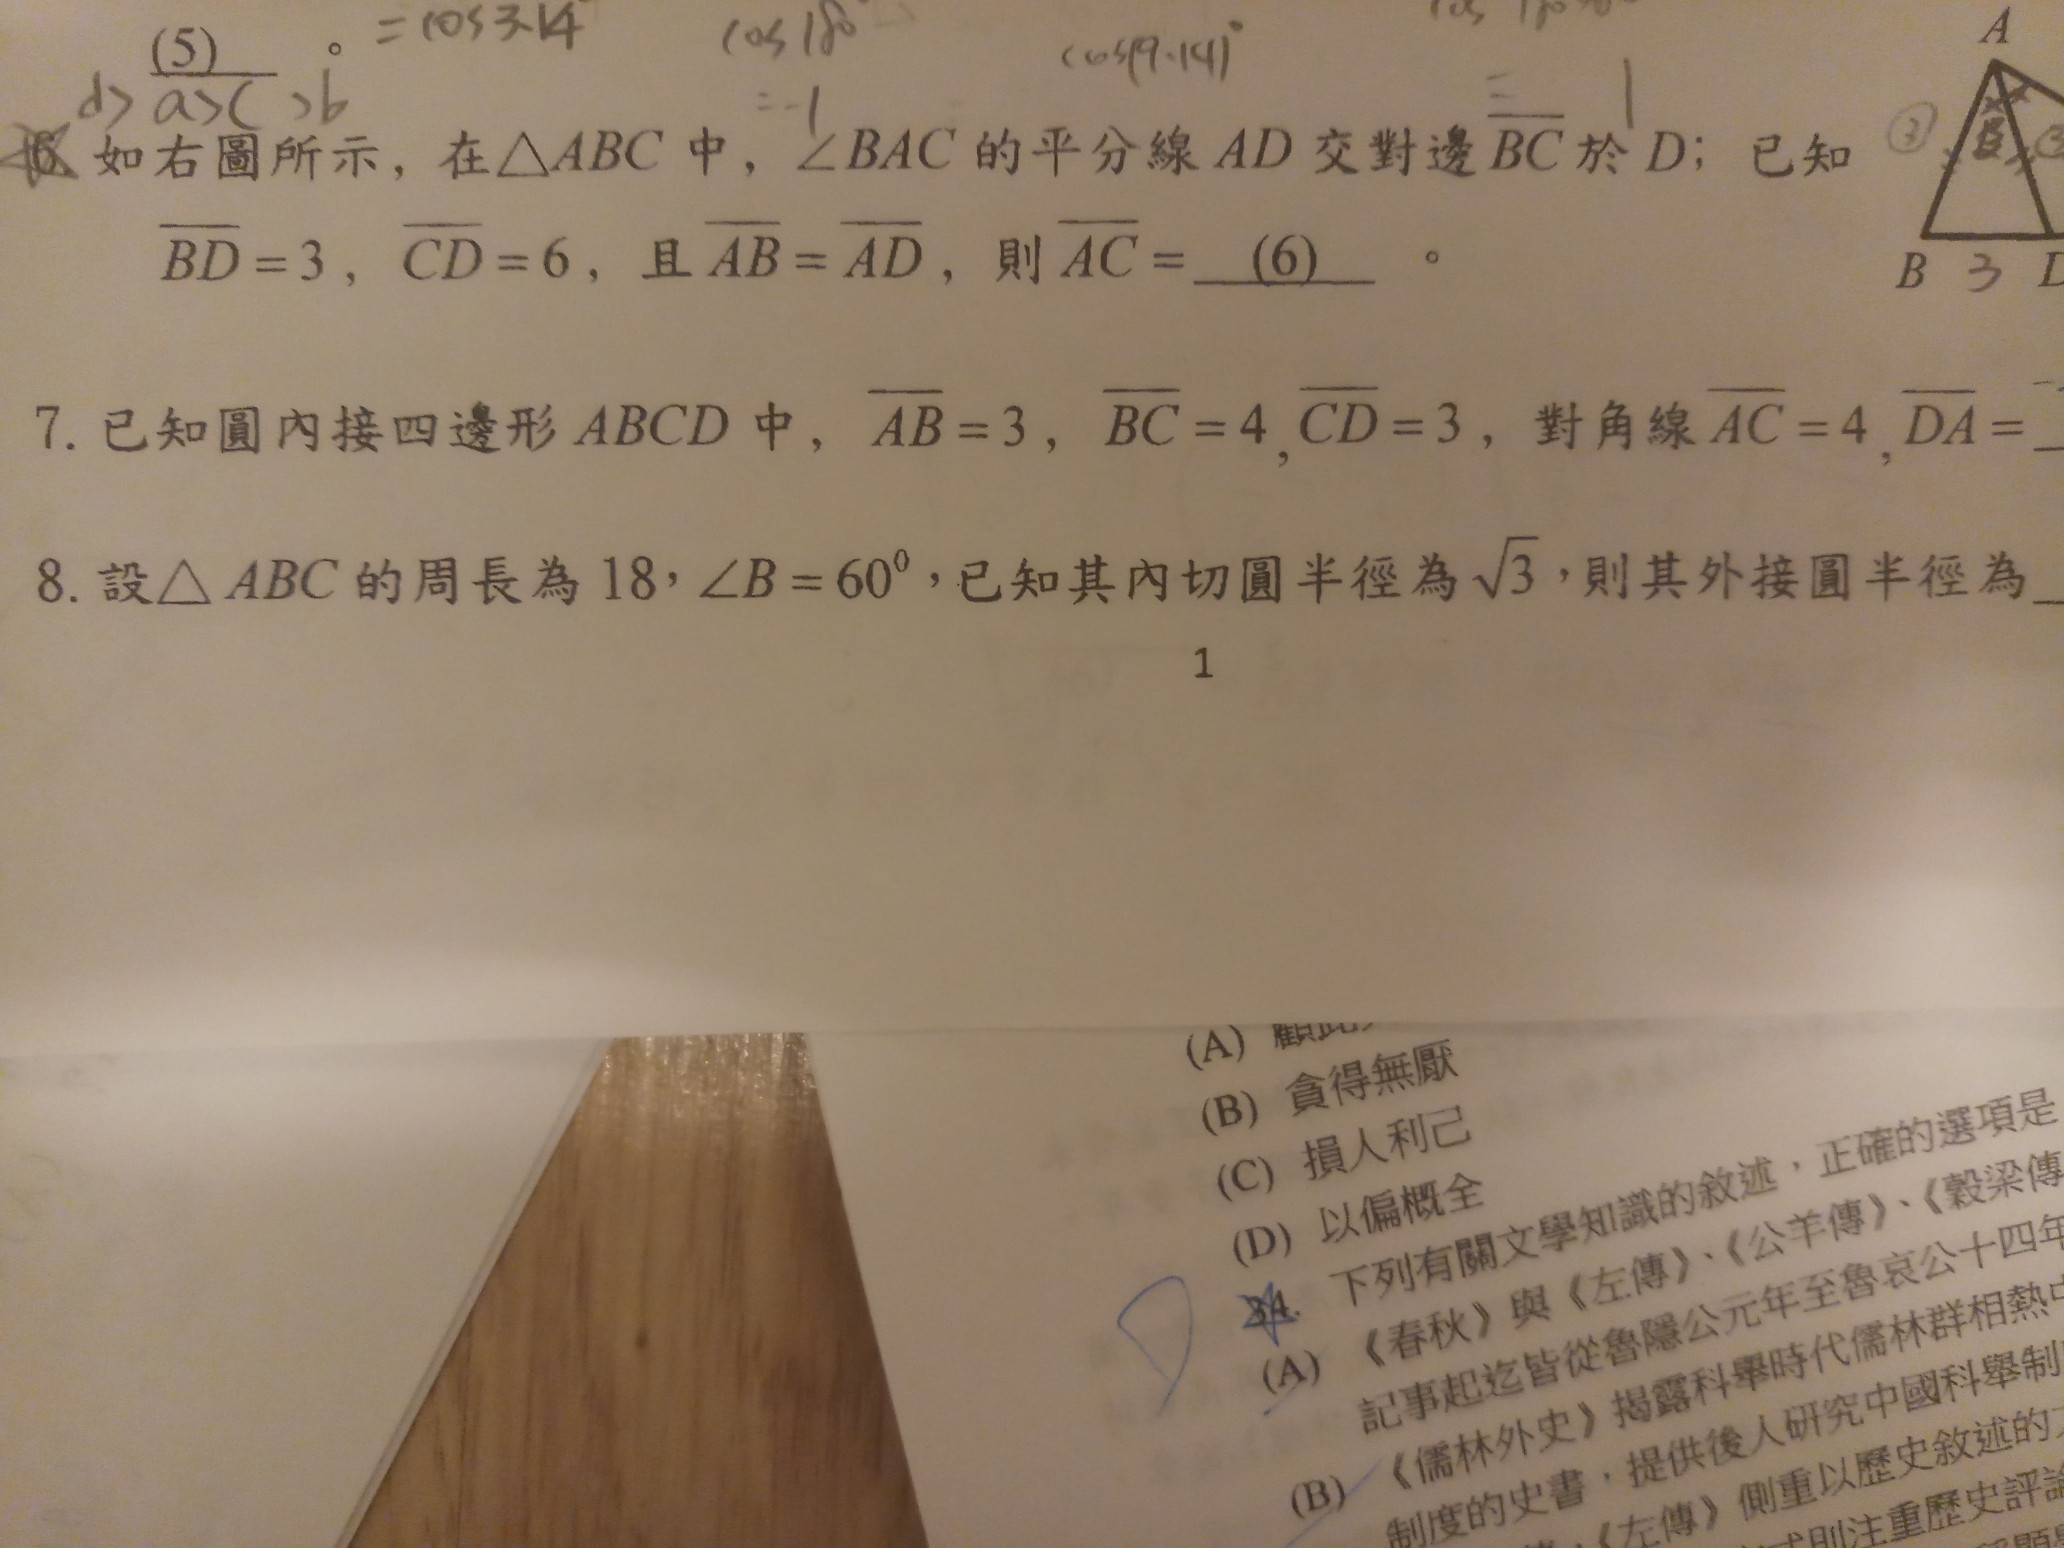 (5) 。 = cos 3.14° cos 180° cos(9.14)°
d> a>c >b = -1 = 1 A
如右圖所示，在△ABC 中，∠BAC 的平分線 AD 交對邊 BC 於 D；已知
BD = 3，CD = 6，且 AB = AD，則 AC = (6) 。
B 3 D
7. 已知圓內接四邊形 ABCD 中，AB = 3，BC = 4, CD = 3，對角線 AC = 4, DA =
8. 設△ ABC 的周長為 18，∠B = 60⁰，已知其內切圓半徑為 √3，則其外接圓半徑為
1
(A)
(B) 貪得無厭
(C) 損人利己
(D) 以偏概全
34. 下列有關文學知識的敘述，正確的選項是
(A) 《春秋》與《左傳》、《公羊傳》、《穀梁傳
記事起迄皆從魯隱公元年至魯哀公十四年
(B) 《儒林外史》揭露科舉時代儒林群相熱中
制度的史書，提供後人研究中國科舉制
《左傳》側重以歷史敘述的
式則注重歷史評論